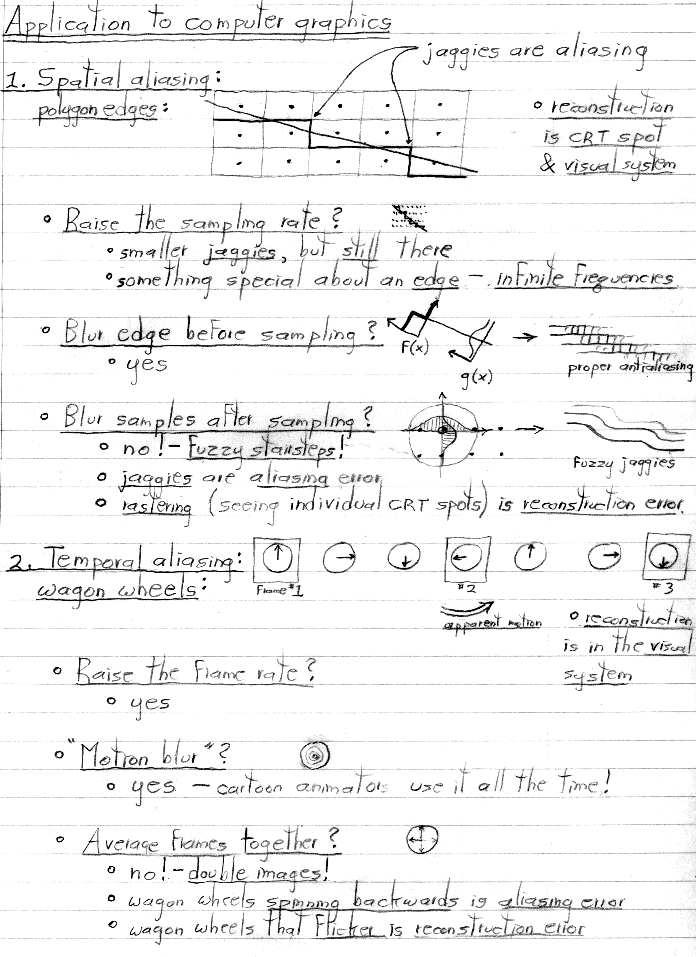 Application to computer graphics
jaggies are aliasing
1. Spatial aliasing:
polygon edges:
° reconstruction
is CRT spot
& visual system
° Raise the sampling rate?
° smaller jaggies, but still there
° something special about an edge – infinite frequencies
° Blur edge before sampling?
° yes
F(x)
g(x)
proper antialiasing
° Blur samples after sampling?
° no! – Fuzzy stairsteps!
Fuzzy jaggies
° jaggies are aliasing error
° rastering (seeing individual CRT spots) is reconstruction error.
2. Temporal aliasing:
wagon wheels:
Frame #1
#2
#3
apparent motion
° reconstruction
is in the visual
system
° Raise the frame rate?
° yes
° "Motion blur"?
° yes – cartoon animators use it all the time!
° Average frames together?
° no! – double images!
° wagon wheels spinning backwards is aliasing error
° wagon wheels that Flicker is reconstruction error